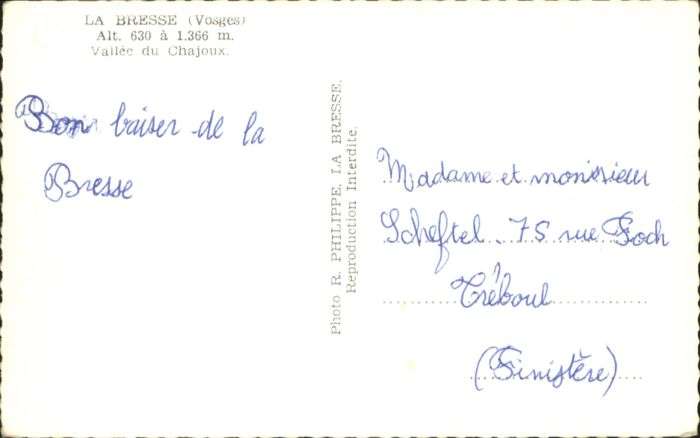 LA BRESSE (Vosges)
Alt. 630 à 1.366 m.
Vallée du Chajoux.
Bon baiser de la
Bresse
Photo R. PHILIPPE, LA BRESSE.
Reproduction Interdite.
Madame et monsieur
Scheftel. 75 rue Foch
Tréboul
(Finistère)